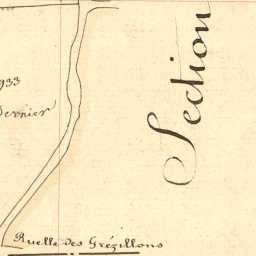 933
Dernier
Section
Ruelle des Grézillons